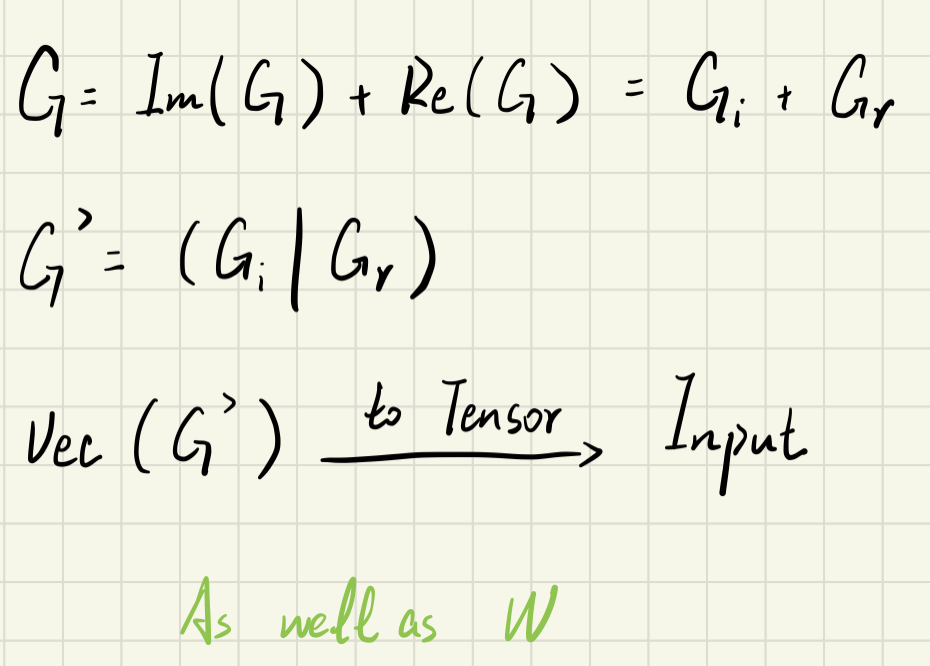 G = Im(G) + Re(G) = Gi + Gr
G' = (Gi | Gr)
Vec (G') to Tensor → Input
As well as W